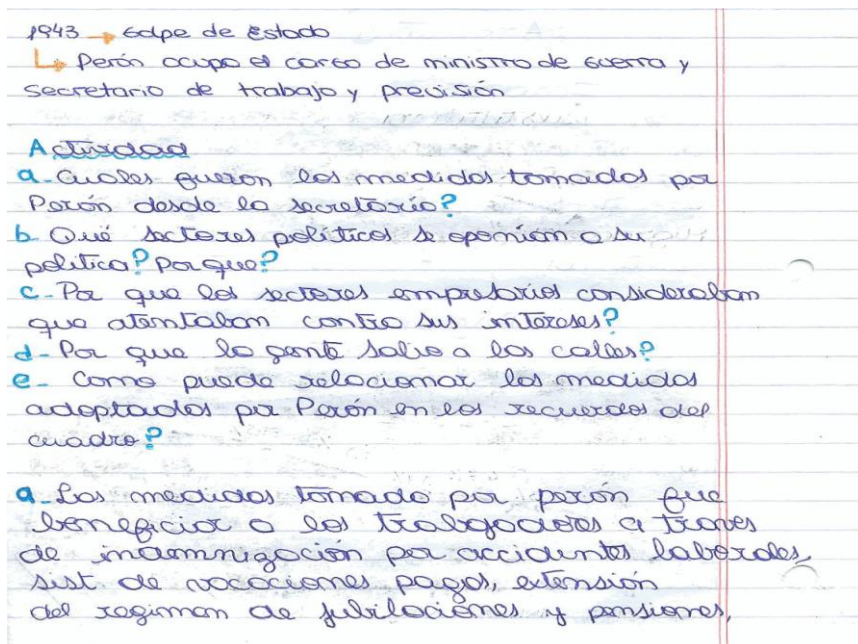 1943 → Golpe de Estado
↳ Perón ocupo el cargo de ministro de Guerra y
secretario de trabajo y previsión
Actividad
a- Cuales fueron las medidas tomadas por
Perón desde la secretaría?
b- Qué sectores políticos se oponían a su
política? Por que?
c- Por que los sectores empresarios consideraban
que atentaban contra sus intereses?
d- Por que la gente salio a las calles?
e- Como puede relacionar las medidas
adoptadas por Perón en los recuerdos del
cuadro?
a- Las medidas tomado por perón fue
beneficiar a los trabajadores a traves
de indemnización por accidentes laborales,
sist. de vacaciones pagas, extensión
del regimen de jubilaciones y pensiones,